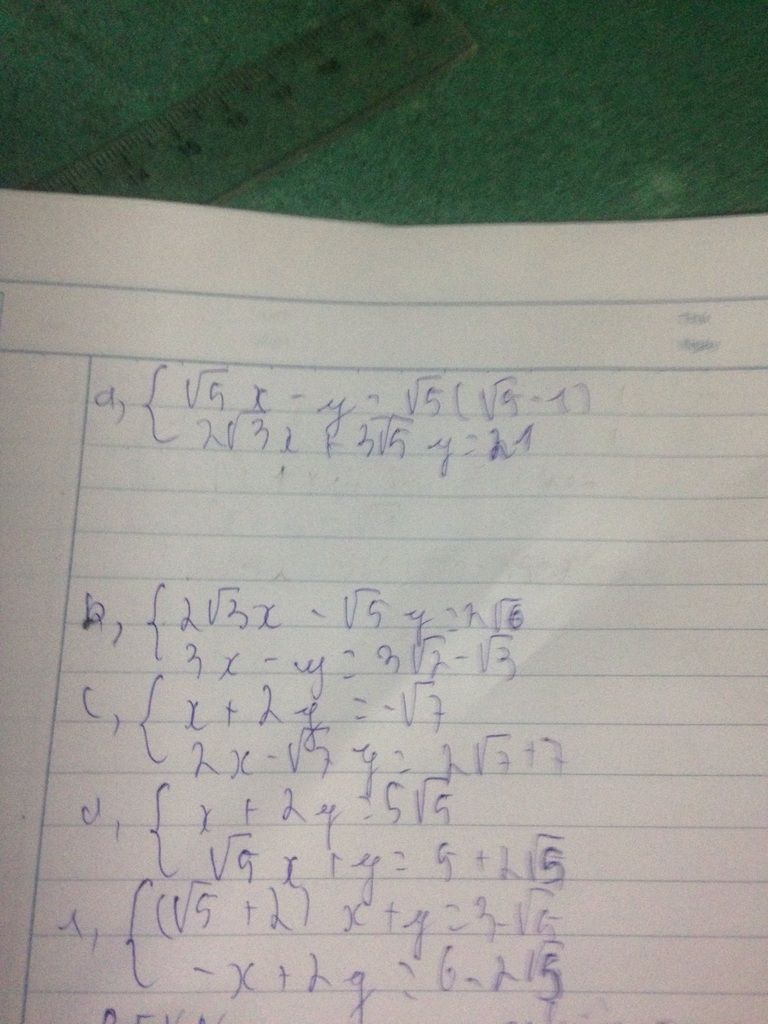 a, { √5 x - y = √5 ( √5 - 1 )
2√3 x + 3√5 y = 21
b, { 2√3 x - √5 y = 2√6
3x - y = 3√2 - √3
c, { x + 2y = -√7
2x - √7 y = 2√7 + 7
d, { x + 2y = 5√5
√5 x + y = 5 + 2√5
(√5 + 2) x + y = 3 - √5
-x + 2y = 6 - 2√5